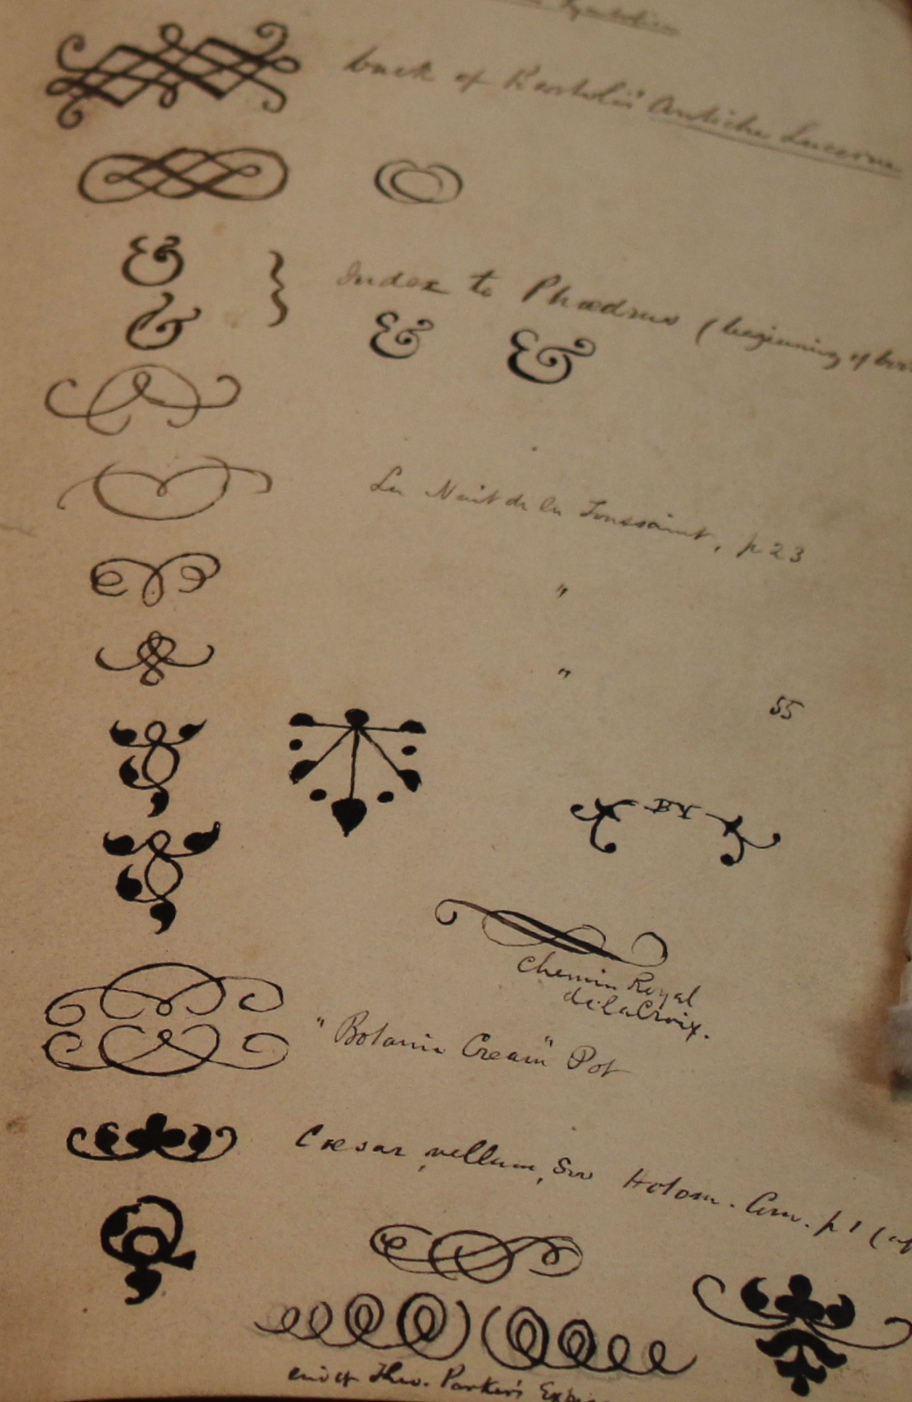 back of Antiche Lucerne
&
& } Index to Phædrus (beginning of
& &
La Nuit de la Toussaint, p 23
"
" 55
BY
Chemin Royal
de la Croix.
"Botanic Cream" Pot
Cæsar, vellum, 8vo Holom. Com. p 1
end of Theo. Parker's